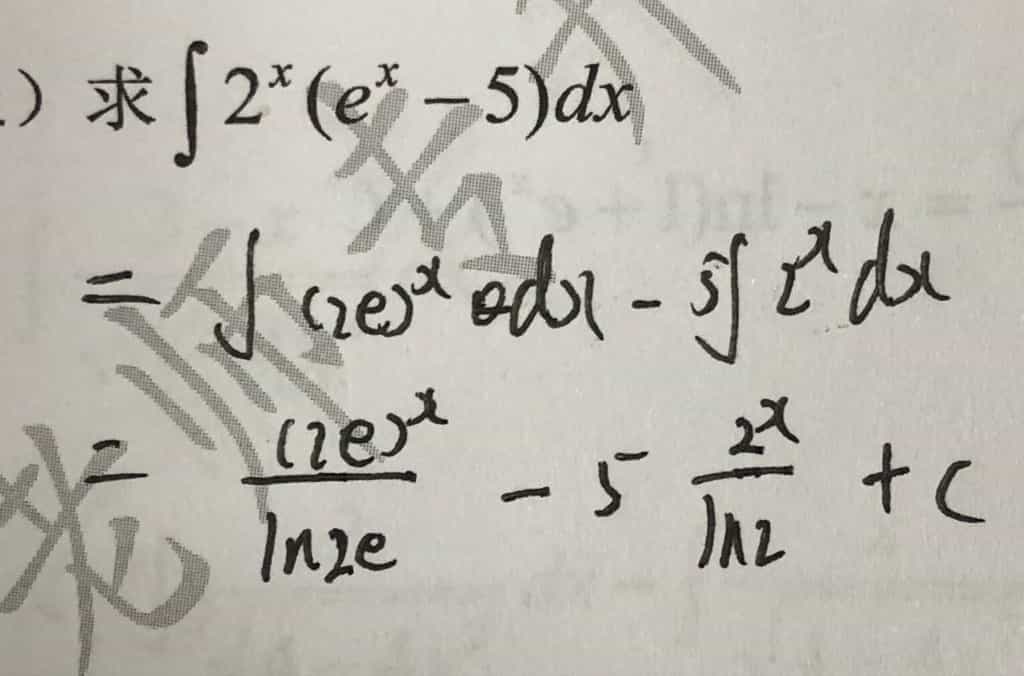 .) 求∫2^x(e^x − 5)dx
= ∫(2e)^x dx − 5∫2^x dx
= (2e)^x / ln2e − 5 2^x / ln2 + C